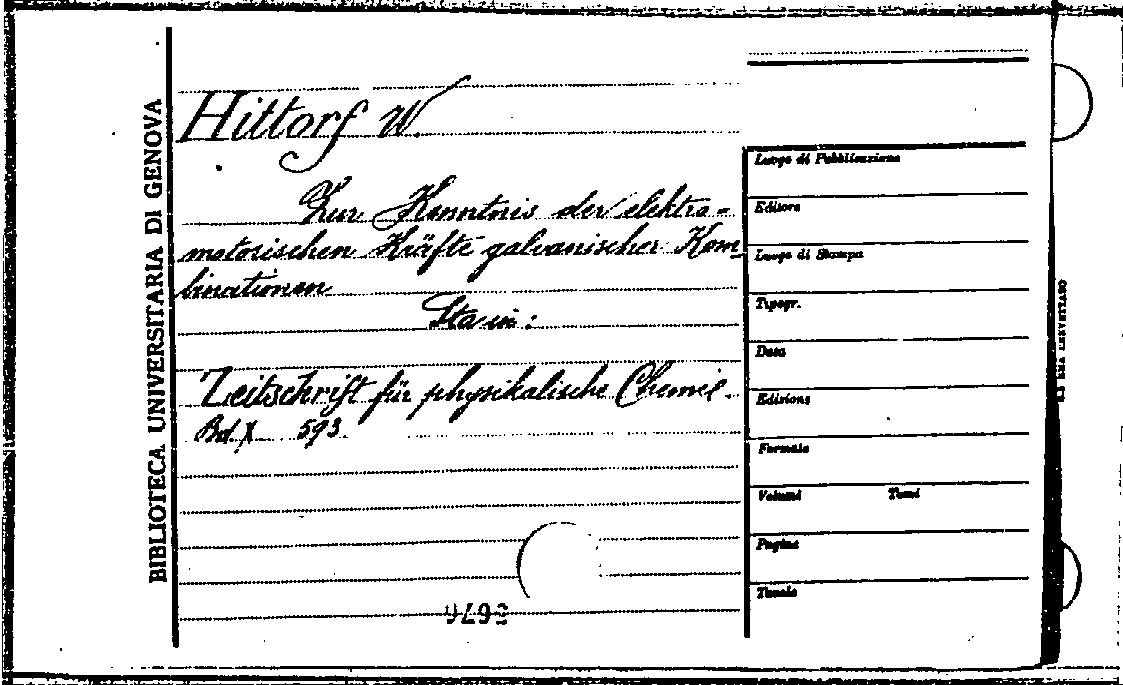 BIBLIOTECA UNIVERSITARIA DI GENOVA
Hittorf W.
Zur Kenntnis der elektro-
motorischen Kräfte galvanischer Kom
binationen
Sta in:
Zeitschrift für physikalische Chemie.
Bd. X 593.
Luogo di Pubblicazione
Editore
Luogo di Stampa
Tipogr.
Data
Edizione
Formato
Volumi Tomi
Pagine
Tavole